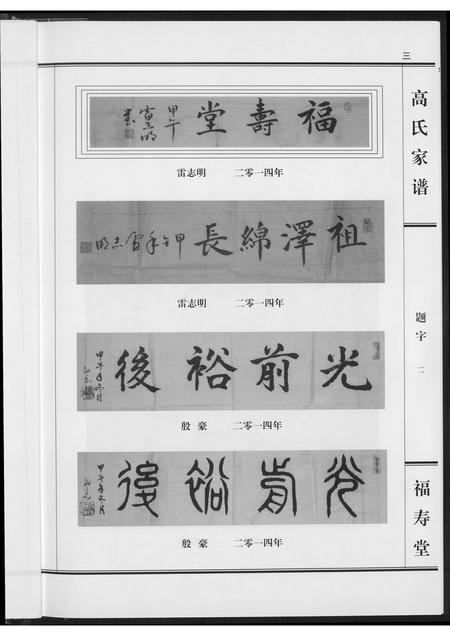 三
高氏家谱
题字 二
福寿堂
福壽堂
甲午 雷志明書
雷志明 二零一四年
祖澤綿長
甲午年雷志明
雷志明 二零一四年
光前裕後
甲午年冬月
殷豪 二零一四年
光前裕後
甲午年冬月
殷豪 二零一四年